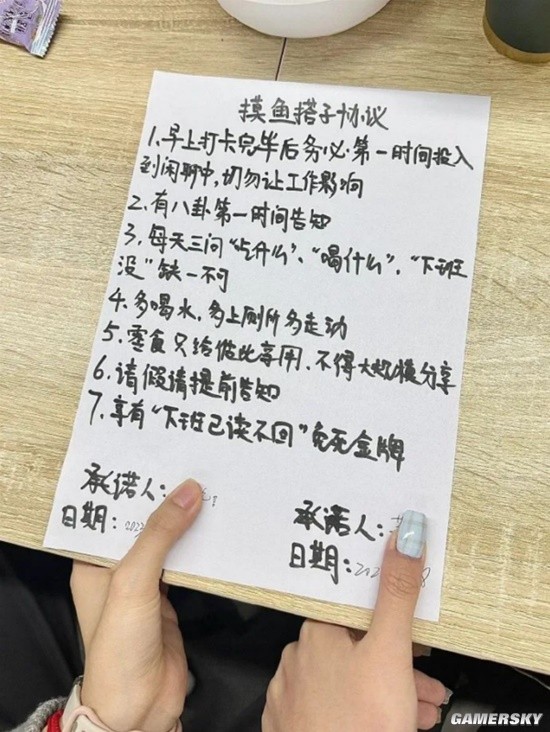 摸鱼搭子协议
1.早上打卡完毕后务必第一时间投入
到闲聊中,切勿让工作影响
2.有八卦第一时间告知
3.每天三问“吃什么”、“喝什么”、“下班
没”缺一不可
4.多喝水,多上厕所多走动
5.零食只给彼此享用、不得大规模分享
6.请假请提前告知
7.享有“下班已读不回”免死金牌
承诺人:
日期:
承诺人:
日期:
GAMERSKY